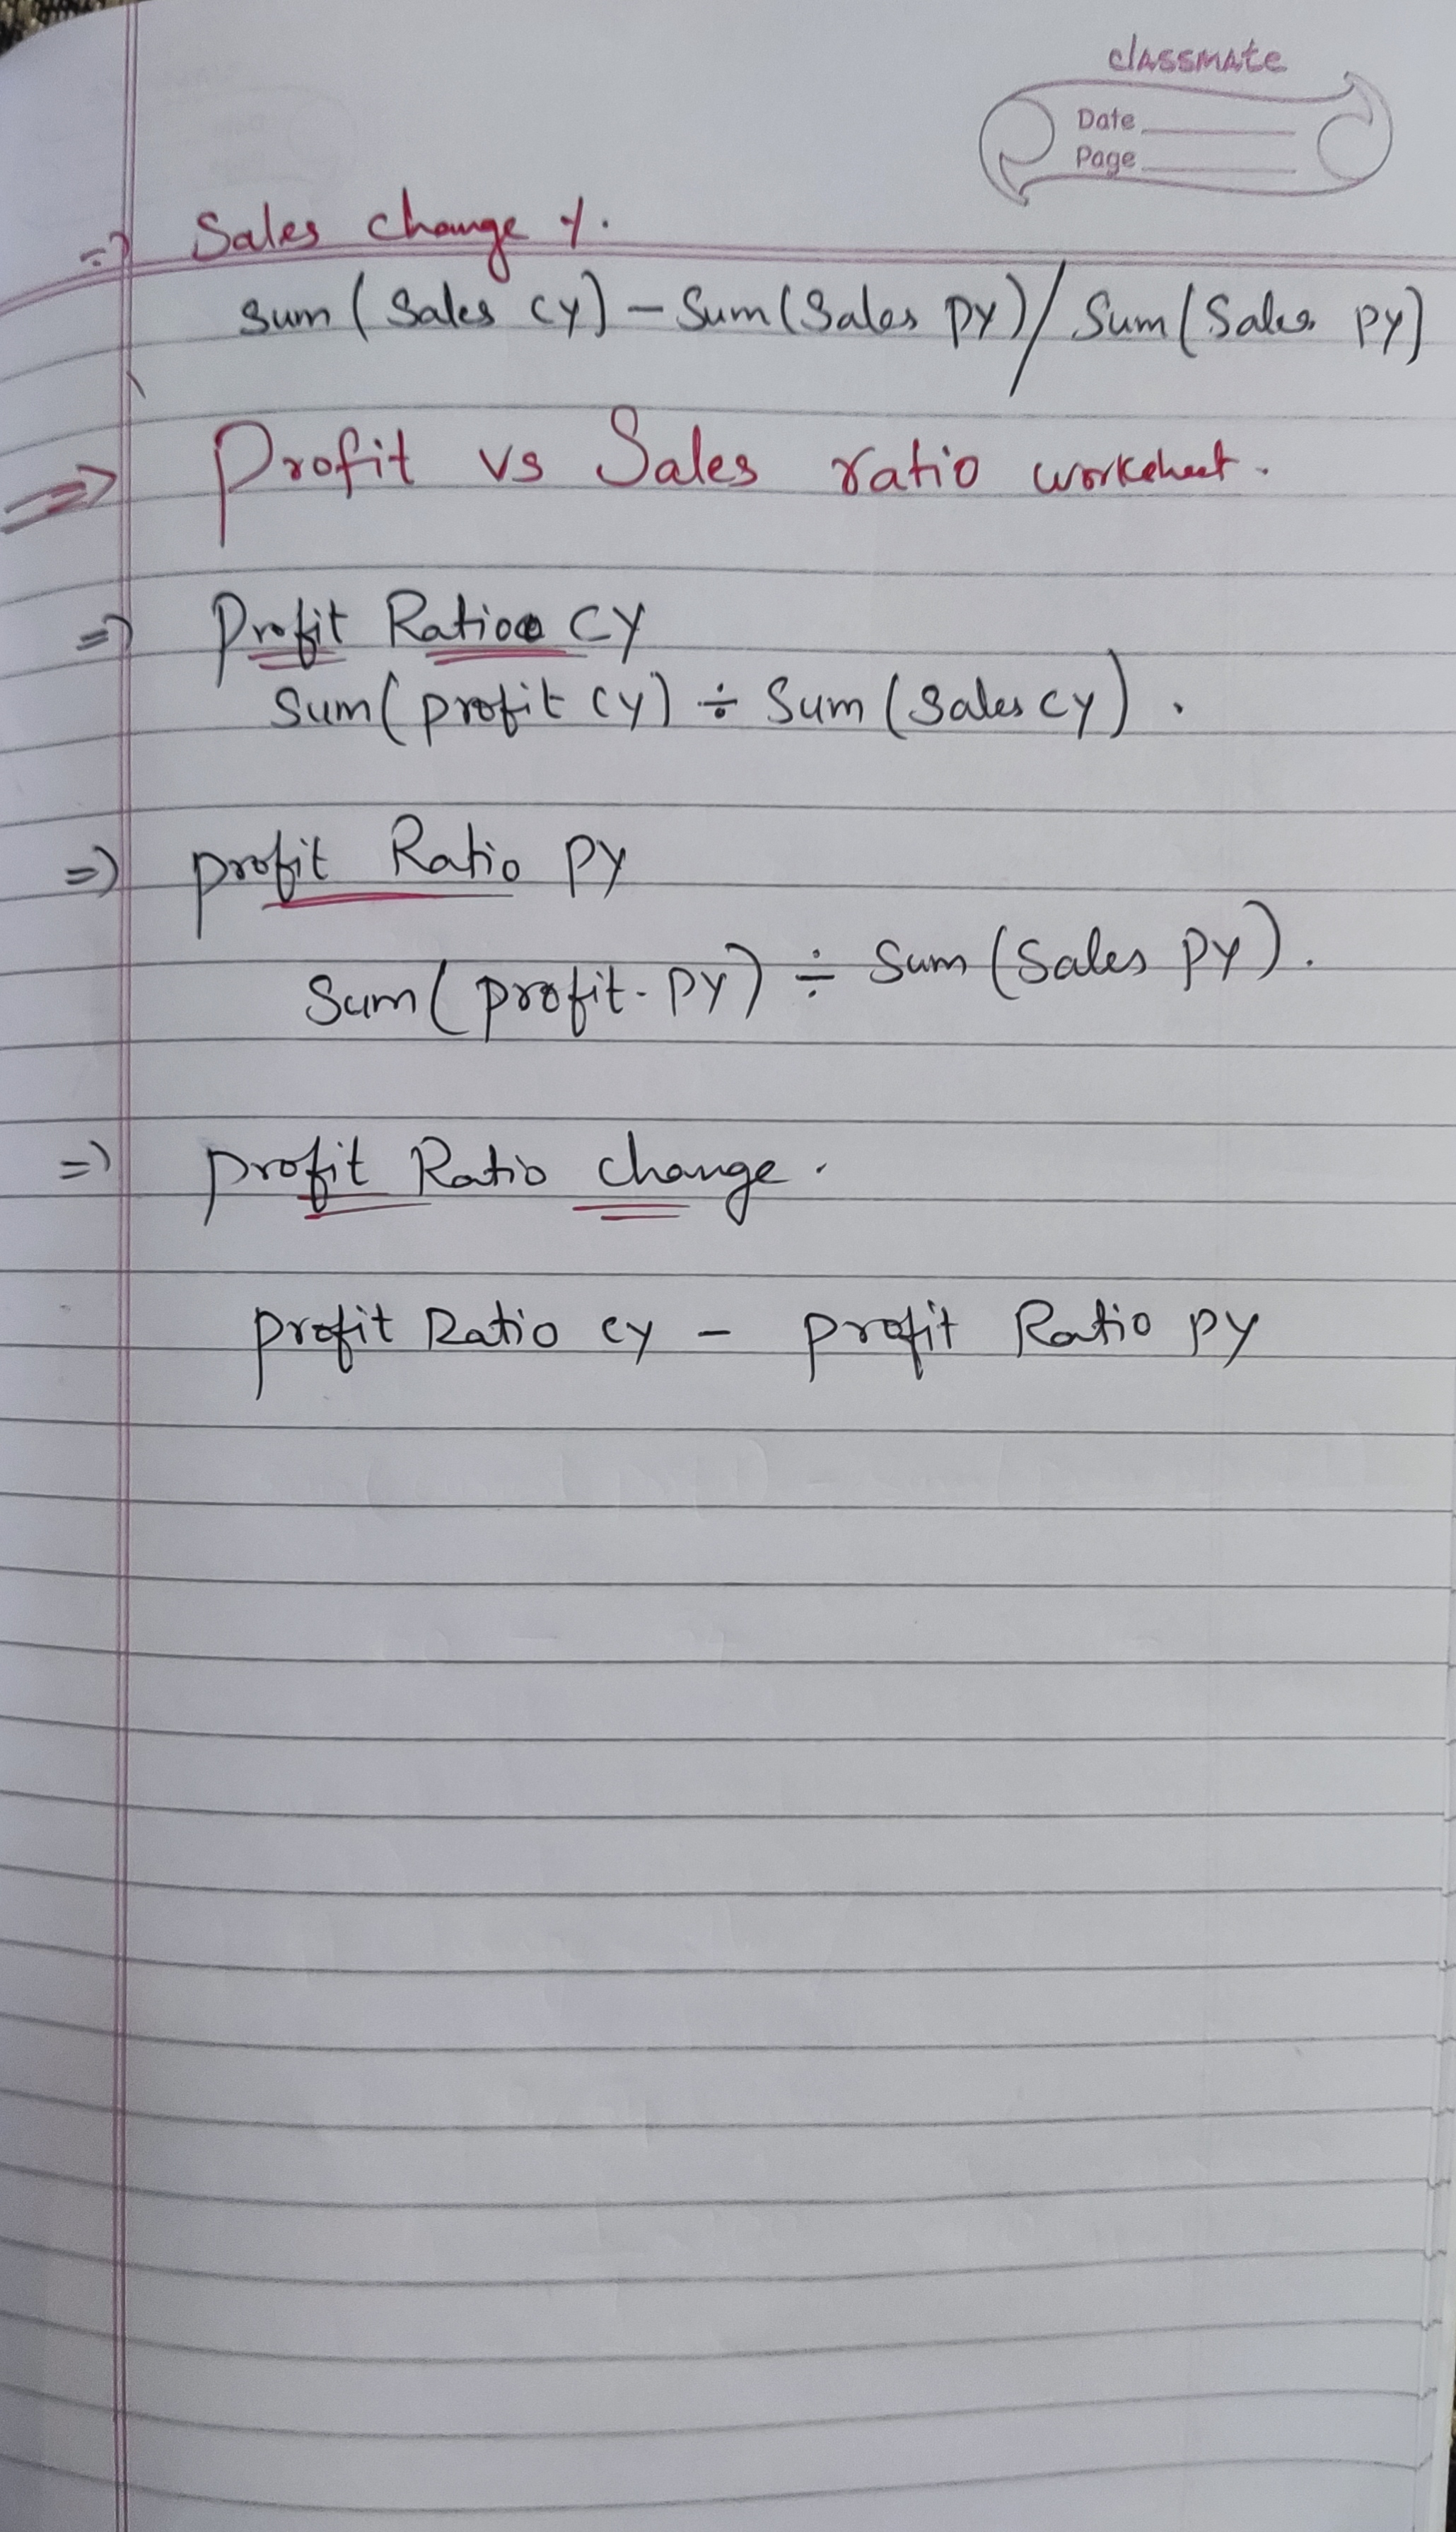 classmate
Date
Page
=> Sales change %.
sum (Sales CY) - Sum (Sales PY) / Sum (Sales PY)
=> Profit vs Sales ratio worksheet.
=> Profit Ratio CY
Sum (profit CY) ÷ Sum (Sales CY).
=> profit Ratio PY
Sum (profit. PY) ÷ Sum (Sales PY).
=> profit Ratio change.
profit Ratio CY - profit Ratio PY